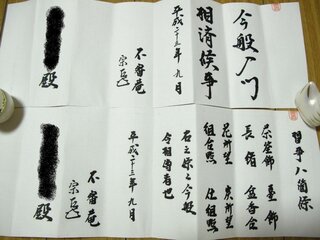 今般入門
相済候事
平成二十三年九月
不審庵
宗旦
殿
習事八箇條
茶筌飾
臺飾
長緒
盆香合
花所望
炭所望
組合點
仕組點
右之條々今般
令相傳者也
平成二十三年九月
不審庵
殿